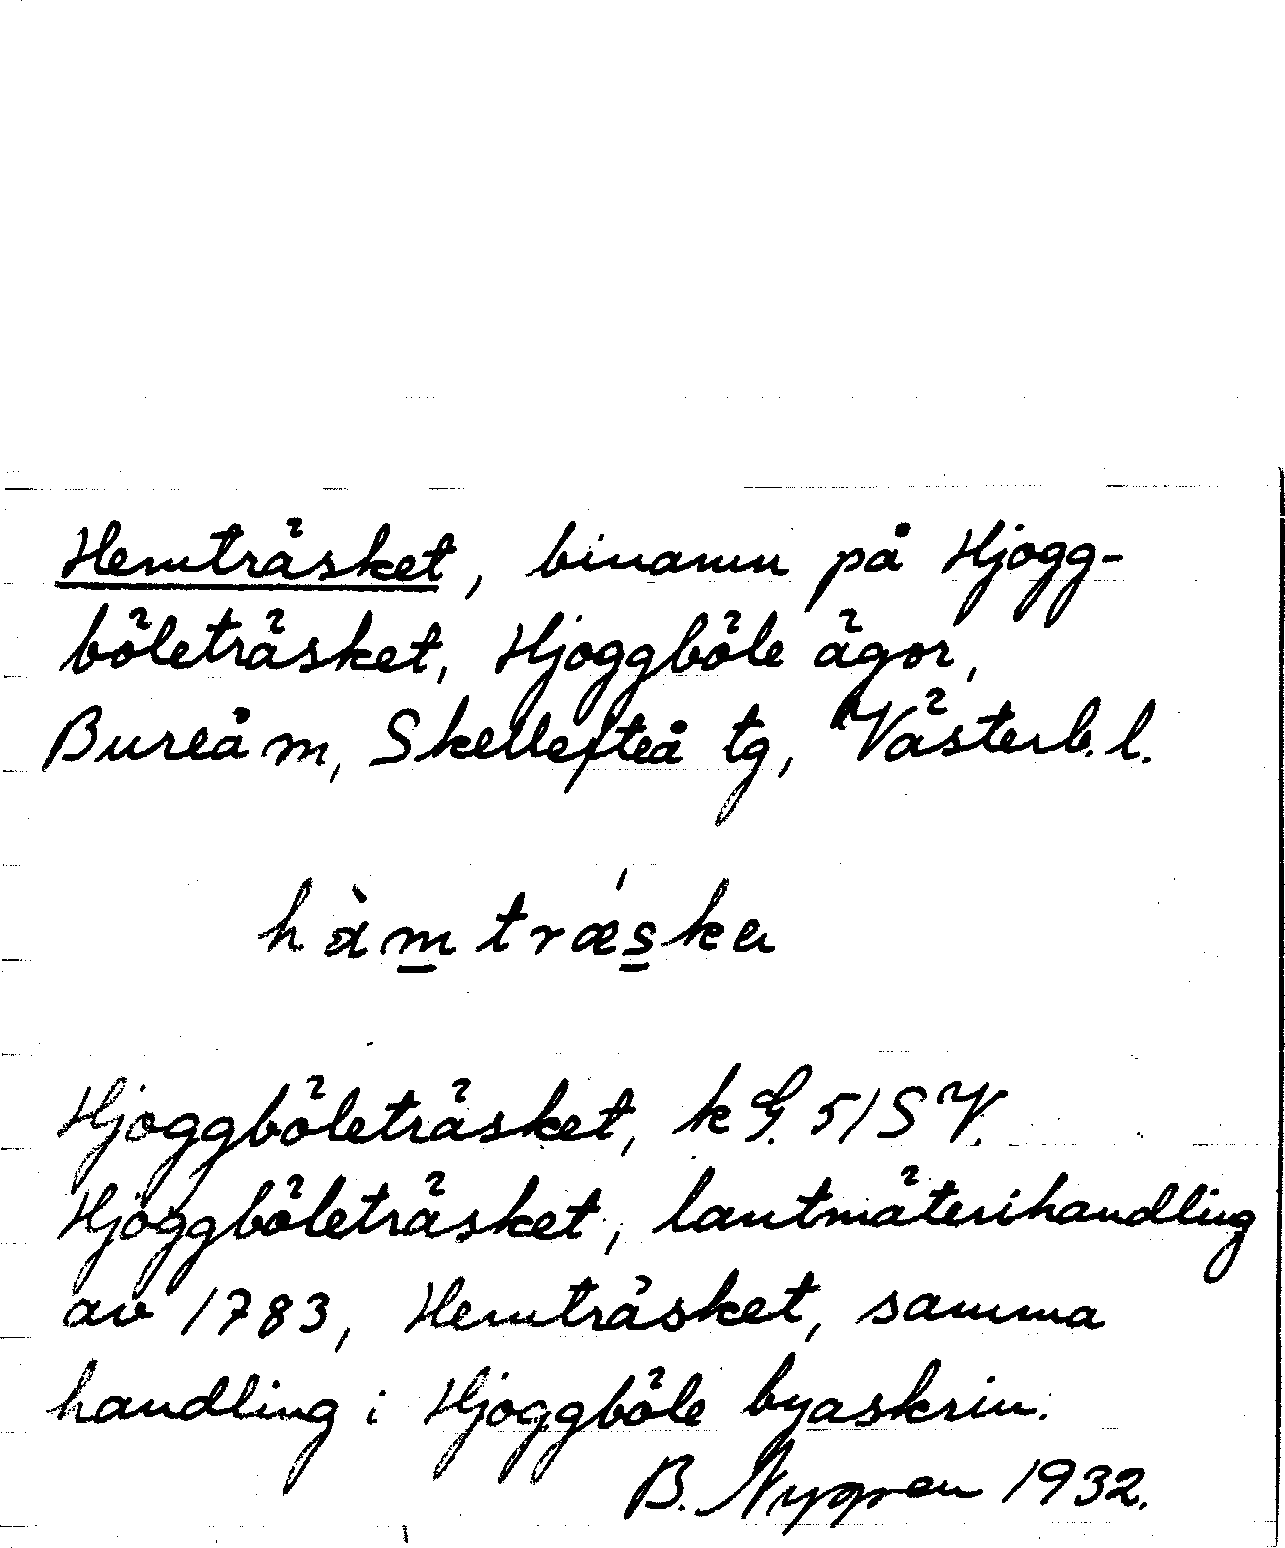 Hemträsket, binamn på Hjogg-
böleträsket, Hjoggböle ägor,
Bureå m, Skellefteå tg, Västerb. l.
hàmtrǽska
Hjoggböleträsket, k G. 51 S V.
Hjoggböleträsket, lantmäterihandling
av 1783, Hemträsket, samma
handling i Hjoggböle byaskrin.
B. Nygren 1932.